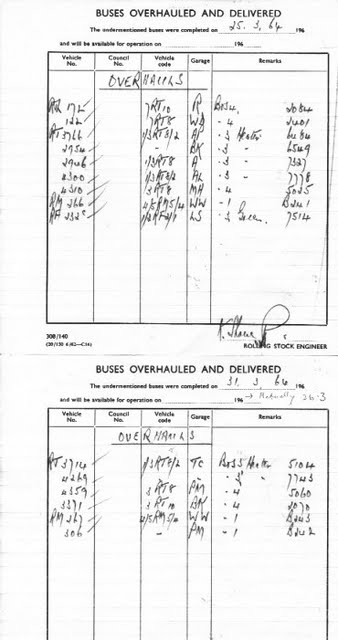 BUSES OVERHAULED AND DELIVERED
The undermentioned buses were completed on 25. 3. 64 196
and will be available for operation on 196
Vehicle No. Council No. Vehicle code Garage Remarks
OVERHAULS
172 RT10 R 2084
122 - 4 2401
RT 3766 1/3 RT8/2 AP - 3 Heater
2954 - BK - 3 - 6549
2946 1/3 RT8 A - 3 - 7327
4300 1/3 RT8/2 AL - 3 - 7778
4310 3 RT8 MH - 4 5025
RM 266 4/5 RM5/4 WW - 1 B241
LS - 3 7514
308/140
ROLLING STOCK ENGINEER
BUSES OVERHAULED AND DELIVERED
The undermentioned buses were completed on 31. 3. 64 196
and will be available for operation on 196 → Actually 26.3
Vehicle No. Council No. Vehicle code Garage Remarks
OVERHAULS
RT 3714 1/3 RT8/2 TC Heater 5104
4269 - - 3 - 7743
4359 3 RT8 PM - 4 5060
3371 3 RT10 BK - 4 2070
RM 267 4/5 RM5/4 WW - 1 B243
306 - PM - 1 B242